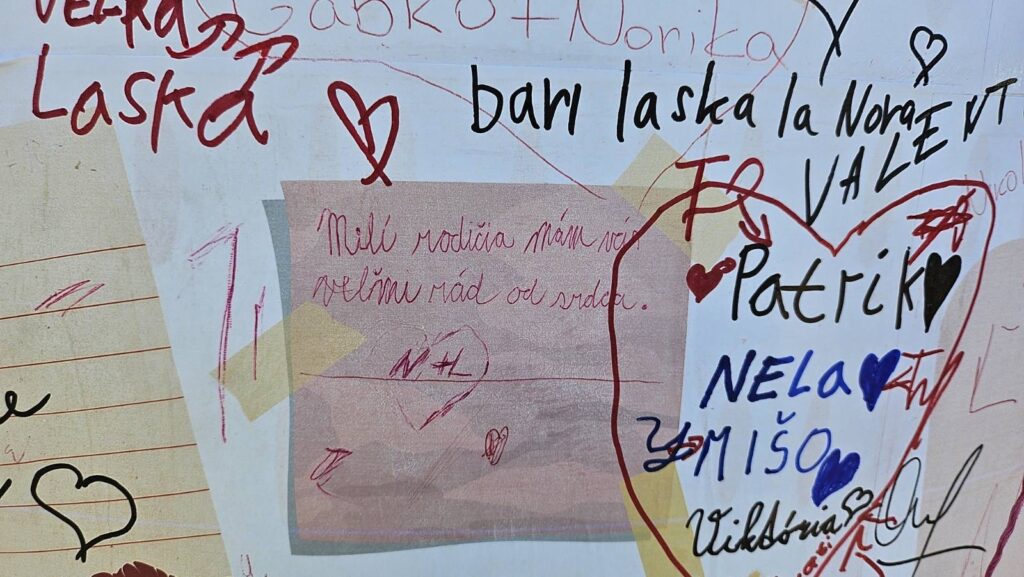 VEĽKá
Laská
Gabko + Norika
bari laska la Nora
VALENT
Milí rodičia mám vás
veľmi rád od srdca.
N+L
Patrik
NELa
MIŠO
Viktória